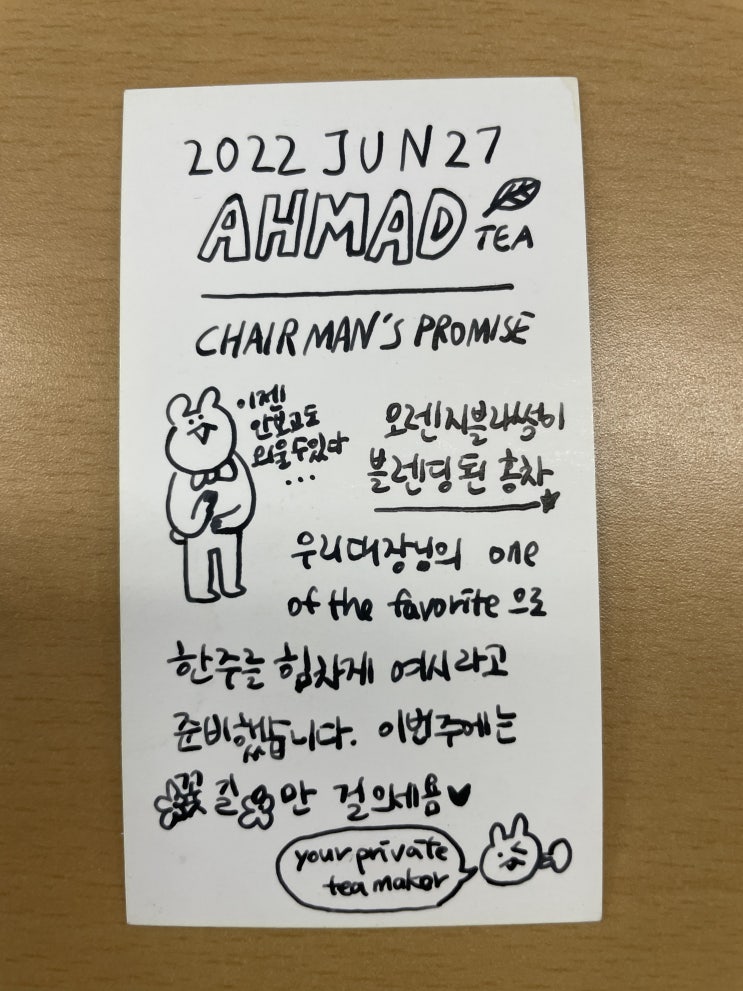 2022 JUN 27
AHMAD
TEA
CHAIRMAN'S PROMISE
이젠
안보고도
외울수있다
...
오렌지블라썸이
블렌딩된 홍차
우리대장님의 one
of the favorite 으로
한주를 힘차게 여시라고
준비했습니다. 이번주에는
꽃길만 걸으세용♥
your private
tea maker